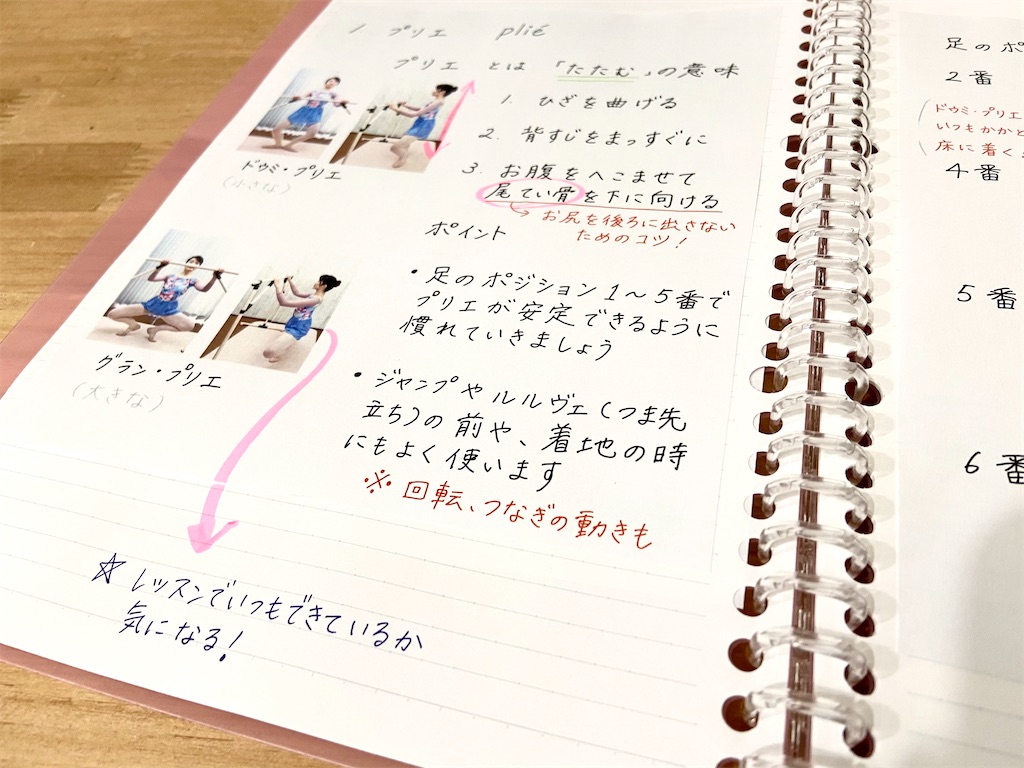 1 プリエ plié
プリエ とは 「たたむ」の意味
1. ひざを曲げる
2. 背すじをまっすぐに
3. お腹をへこませて
尾てい骨を下に向ける
→ お尻を後ろに出さない
ためのコツ!
ドゥミ・プリエ
(小さな)
グラン・プリエ
(大きな)
ポイント
• 足のポジション1〜5番で
プリエが安定できるように
慣れていきましょう
• ジャンプやルルヴェ(つま先
立ち)の前や、着地の時
にもよく使います
※ 回転、つなぎの動きも
☆ レッスンでいつもできているか
気になる!
足のポ
2番
ドゥミ・プリエ
いつもかかと
床に着く
4番
5番
6番